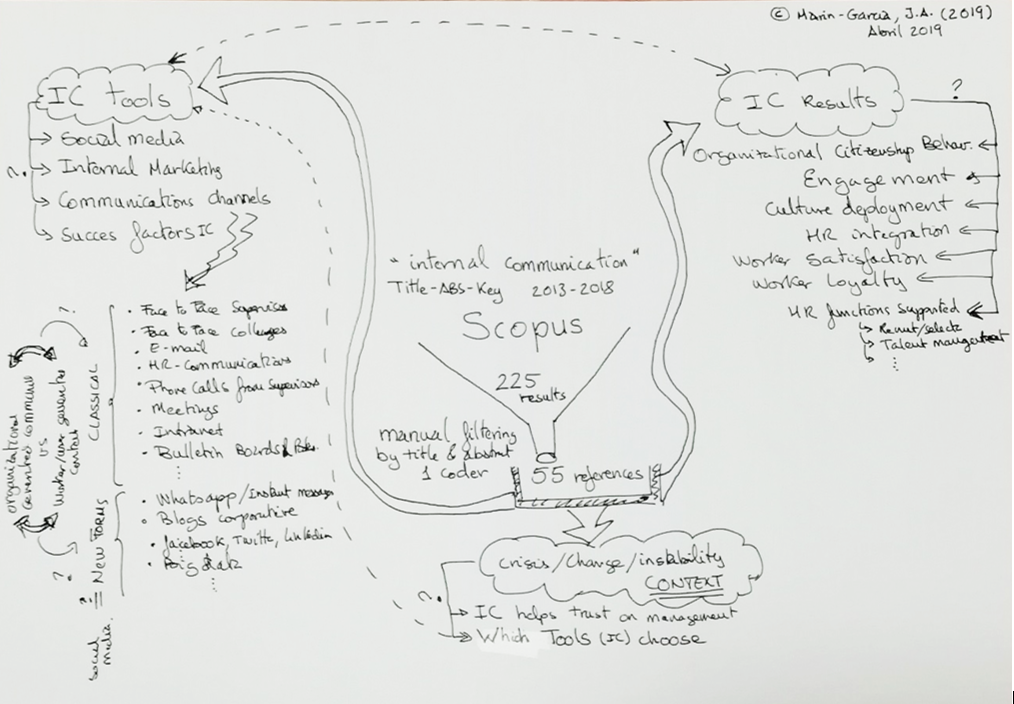 © Marin-Garcia, J.A. (2019)
Abril 2019
IC Tools
Social media
?
Internal Marketing
Communications channels
Succes factors IC
IC Results
?
Organizational Citizenship Behav.
Engagement
Culture deployment
HR integration
Worker Satisfaction
Worker Loyalty
HR functions supported
Recruit/select
Talent management
"internal communication"
Title-ABS-Key 2013-2018
Scopus
225
results
manual filtering
by title & abstract
1 coder
55 references
• Face to Face Supervisor
• Face to Face Colleages
• E-mail
• HR-Communications
• Phone Calls from Supervisors
• Meetings
• Intranet
• Bulletin Boards &
• Whatsapp/Instant messages
• Blogs corporative
• facebook, Twitter, Linkedin
CLASSICAL
NEW FORMS
?
organizational
Generated
vs
Worker/user generated
content
?
?
=
Social
media.
Crisis/Change/instability
CONTEXT
?
IC helps trust on management
Which Tools (IC) choose